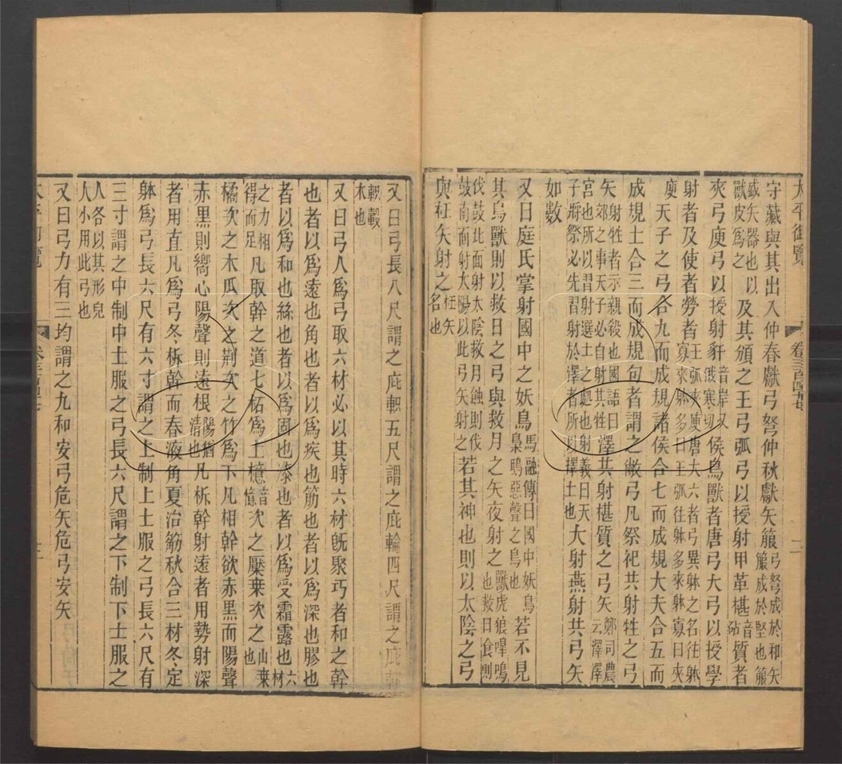 太平御覽 卷三百四十七 二
守藏與其出入仲春獻弓弩仲秋獻矢箙弓弩成於和矢箙成於堅也箙
盛矢器也以獸皮爲之及其頒之王弓弧弓以授射甲革椹音砧質者
夾弓庾弓以授射豻音岸又渡寒切侯鳥獸者唐弓大弓以授學
射者及使者勞者王弧夾庾唐大六者弓異躰之名往躰寡來躰多曰王弧往躰多來躰寡曰夾
庾天子之弓合九而成規諸侯合七而成規大夫合五而
成規士合三而成規句者謂之敝弓凡祭祀共射牲之弓
矢射牲者示親殺也國語曰郊之事天子必自射其牲澤共射椹質之弓矢鄭司農云澤澤
宮也所以習射選士之處也射義曰天子將祭必先習射於澤澤者所以擇士也大射燕射共弓矢
如數
又曰庭氏掌射國中之妖鳥馬融傳曰國中妖鳥梟鴟惡聲之鳥也若不見
其鳥獸則以救日之弓與救月之矢夜射之獸虎狼嘷鳴也救日食則
伐鼓北面射太陰救月蝕則伐鼓南面射太陽以此弓矢射之若其神也則以太陰之弓
與枉矢射之枉矢名也
又曰弓長八尺謂之庇軹五尺謂之庇輪四尺謂之庇軫
軹轂木也
又曰弓人爲弓取六材必以其時六材旣聚巧者和之幹
也者以爲遠也角也者以爲疾也筋也者以爲深也膠也
者以爲和也絲也者以爲固也漆也者以爲受霜露也六材
之力相得而足凡取幹之道七柘爲上檍音億次之檿桒次之山桒也
橘次之木瓜次之荆次之竹爲下凡相幹欲赤黑而陽聲
赤黑則嚮心陽聲則遠根陽猶清也凡析幹射遠者用勢射深
者用直凡爲弓冬析幹而春液角夏治筋秋合三材冬定
躰爲弓長六尺有六寸謂之上制上士服之弓長六尺有
三寸謂之中制中士服之弓長六尺謂之下制下士服之
人各以其形皃大小用此弓也
又曰弓力有三均謂之九和安弓危矢危弓安矢